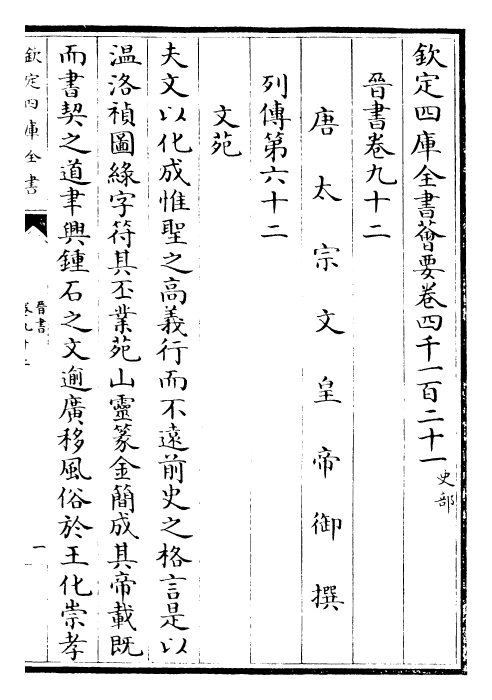 欽定四庫全書薈要卷四千一百二十一 史部
晉書卷九十二
唐太宗文皇帝御撰
列傳第六十二
文苑
夫文以化成惟聖之高義行而不遠前史之格言是以
温洛禎圖緣字符其丕業苑山靈篆金簡成其帝載既
而書契之道聿興鍾石之文逾廣移風俗於王化崇孝
欽定四庫全書
晉書
卷九十二
一